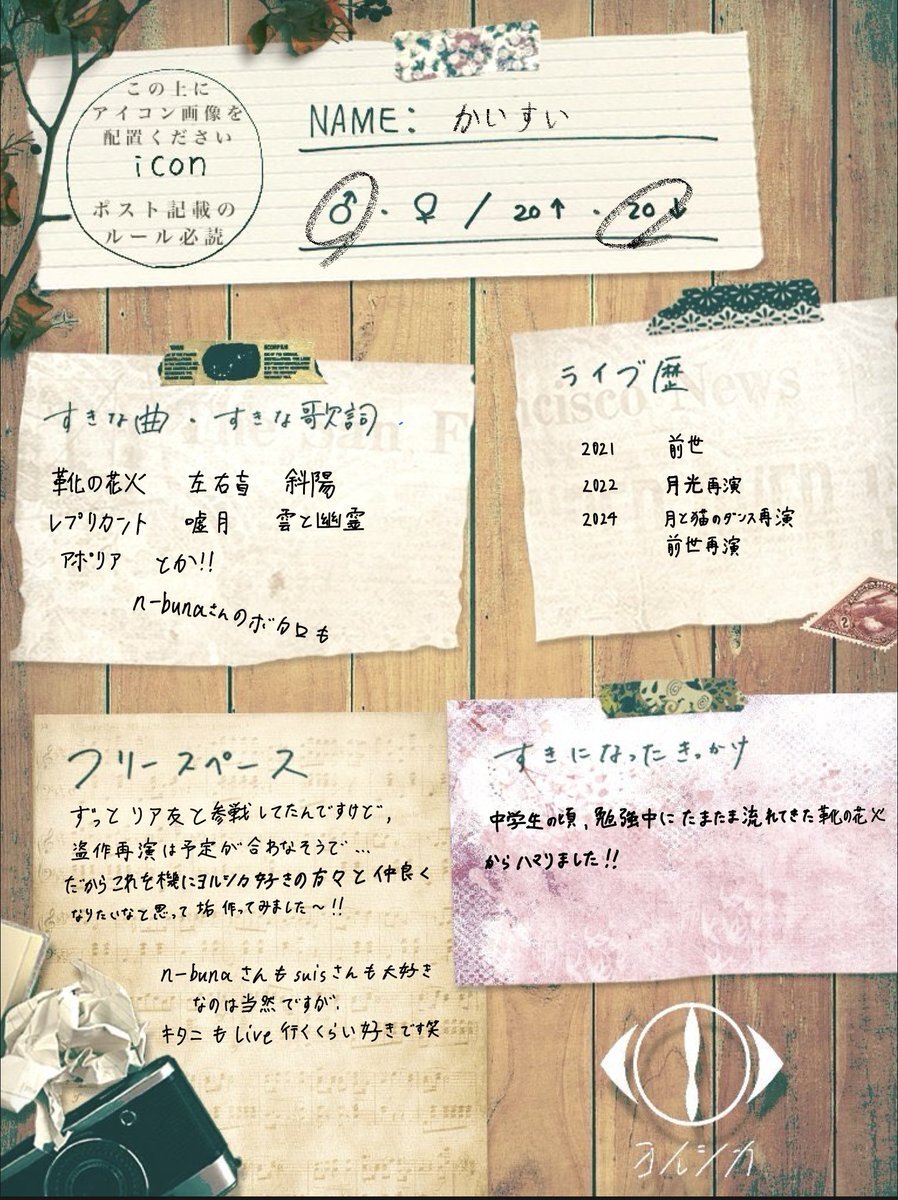 この上に
アイコン画像を
配置ください
icon
ポスト記載の
ルール必読
NAME: かいすい
♂・♀ / 20↑・20↓
すきな曲・すきな歌詞
靴の花火 左右盲 斜陽
レプリカント 嘘月 雲と幽霊
アポリア とか!!
n-bunaさんのボカロも
ライブ歴
2021 前世
2022 月光再演
2024 月と猫のダンス再演
前世再演
フリースペース
ずっとリア友と参戦してたんですけど,
盗作再演は予定が合わなそうで…
だからこれを機にヨルシカ好きの方々と仲良く
なりたいなと思って垢作ってみました〜!!
n-bunaさんもsuisさんも大好き
なのは当然ですが,
キタニもLive行くくらい好きです笑
すきになったきっかけ
中学生の頃,勉強中にたまたま流れてきた靴の花火
からハマりました!!
ヨルシカ